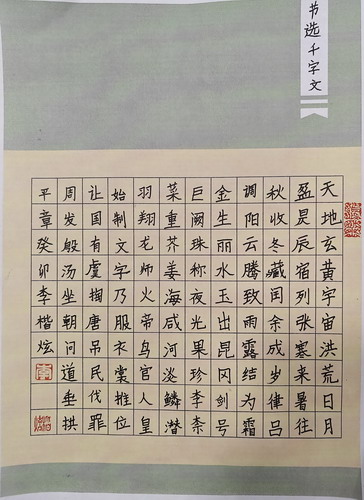 节选千字文
天地玄黄宇宙洪荒日月
盈昃辰宿列张寒来暑往
秋收冬藏闰余成岁律吕
调阳云腾致雨露结为霜
金生丽水玉出昆冈剑号
巨阙珠称夜光果珍李柰
菜重芥姜海咸河淡鳞潜
羽翔龙师火帝鸟官人皇
始制文字乃服衣裳推位
让国有虞掏唐吊民伐罪
周发殷汤坐朝问道垂拱
平章癸卯李楷炫